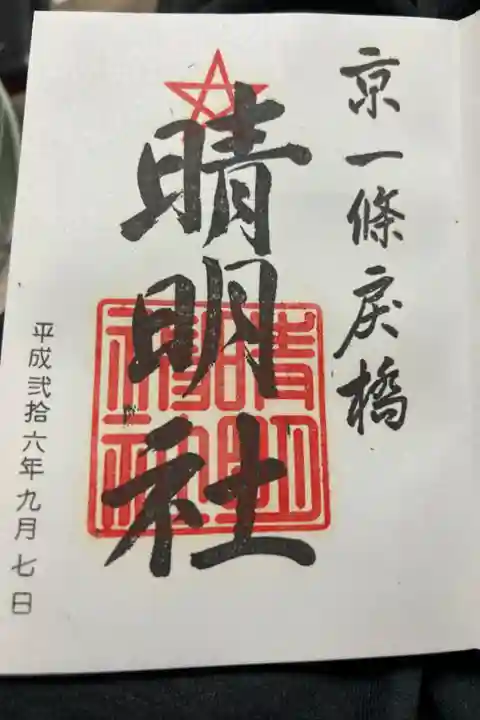 京一條戻橋
晴明社
晴明神社
平成弐拾六年九月七日